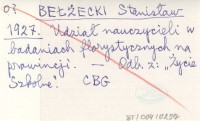 BEŁŻECKI Stanisław
1927. Udział nauczycieli w
badaniach florystycznych na
prowincji. — Odb. z: "Życie
Szkolne". CBG